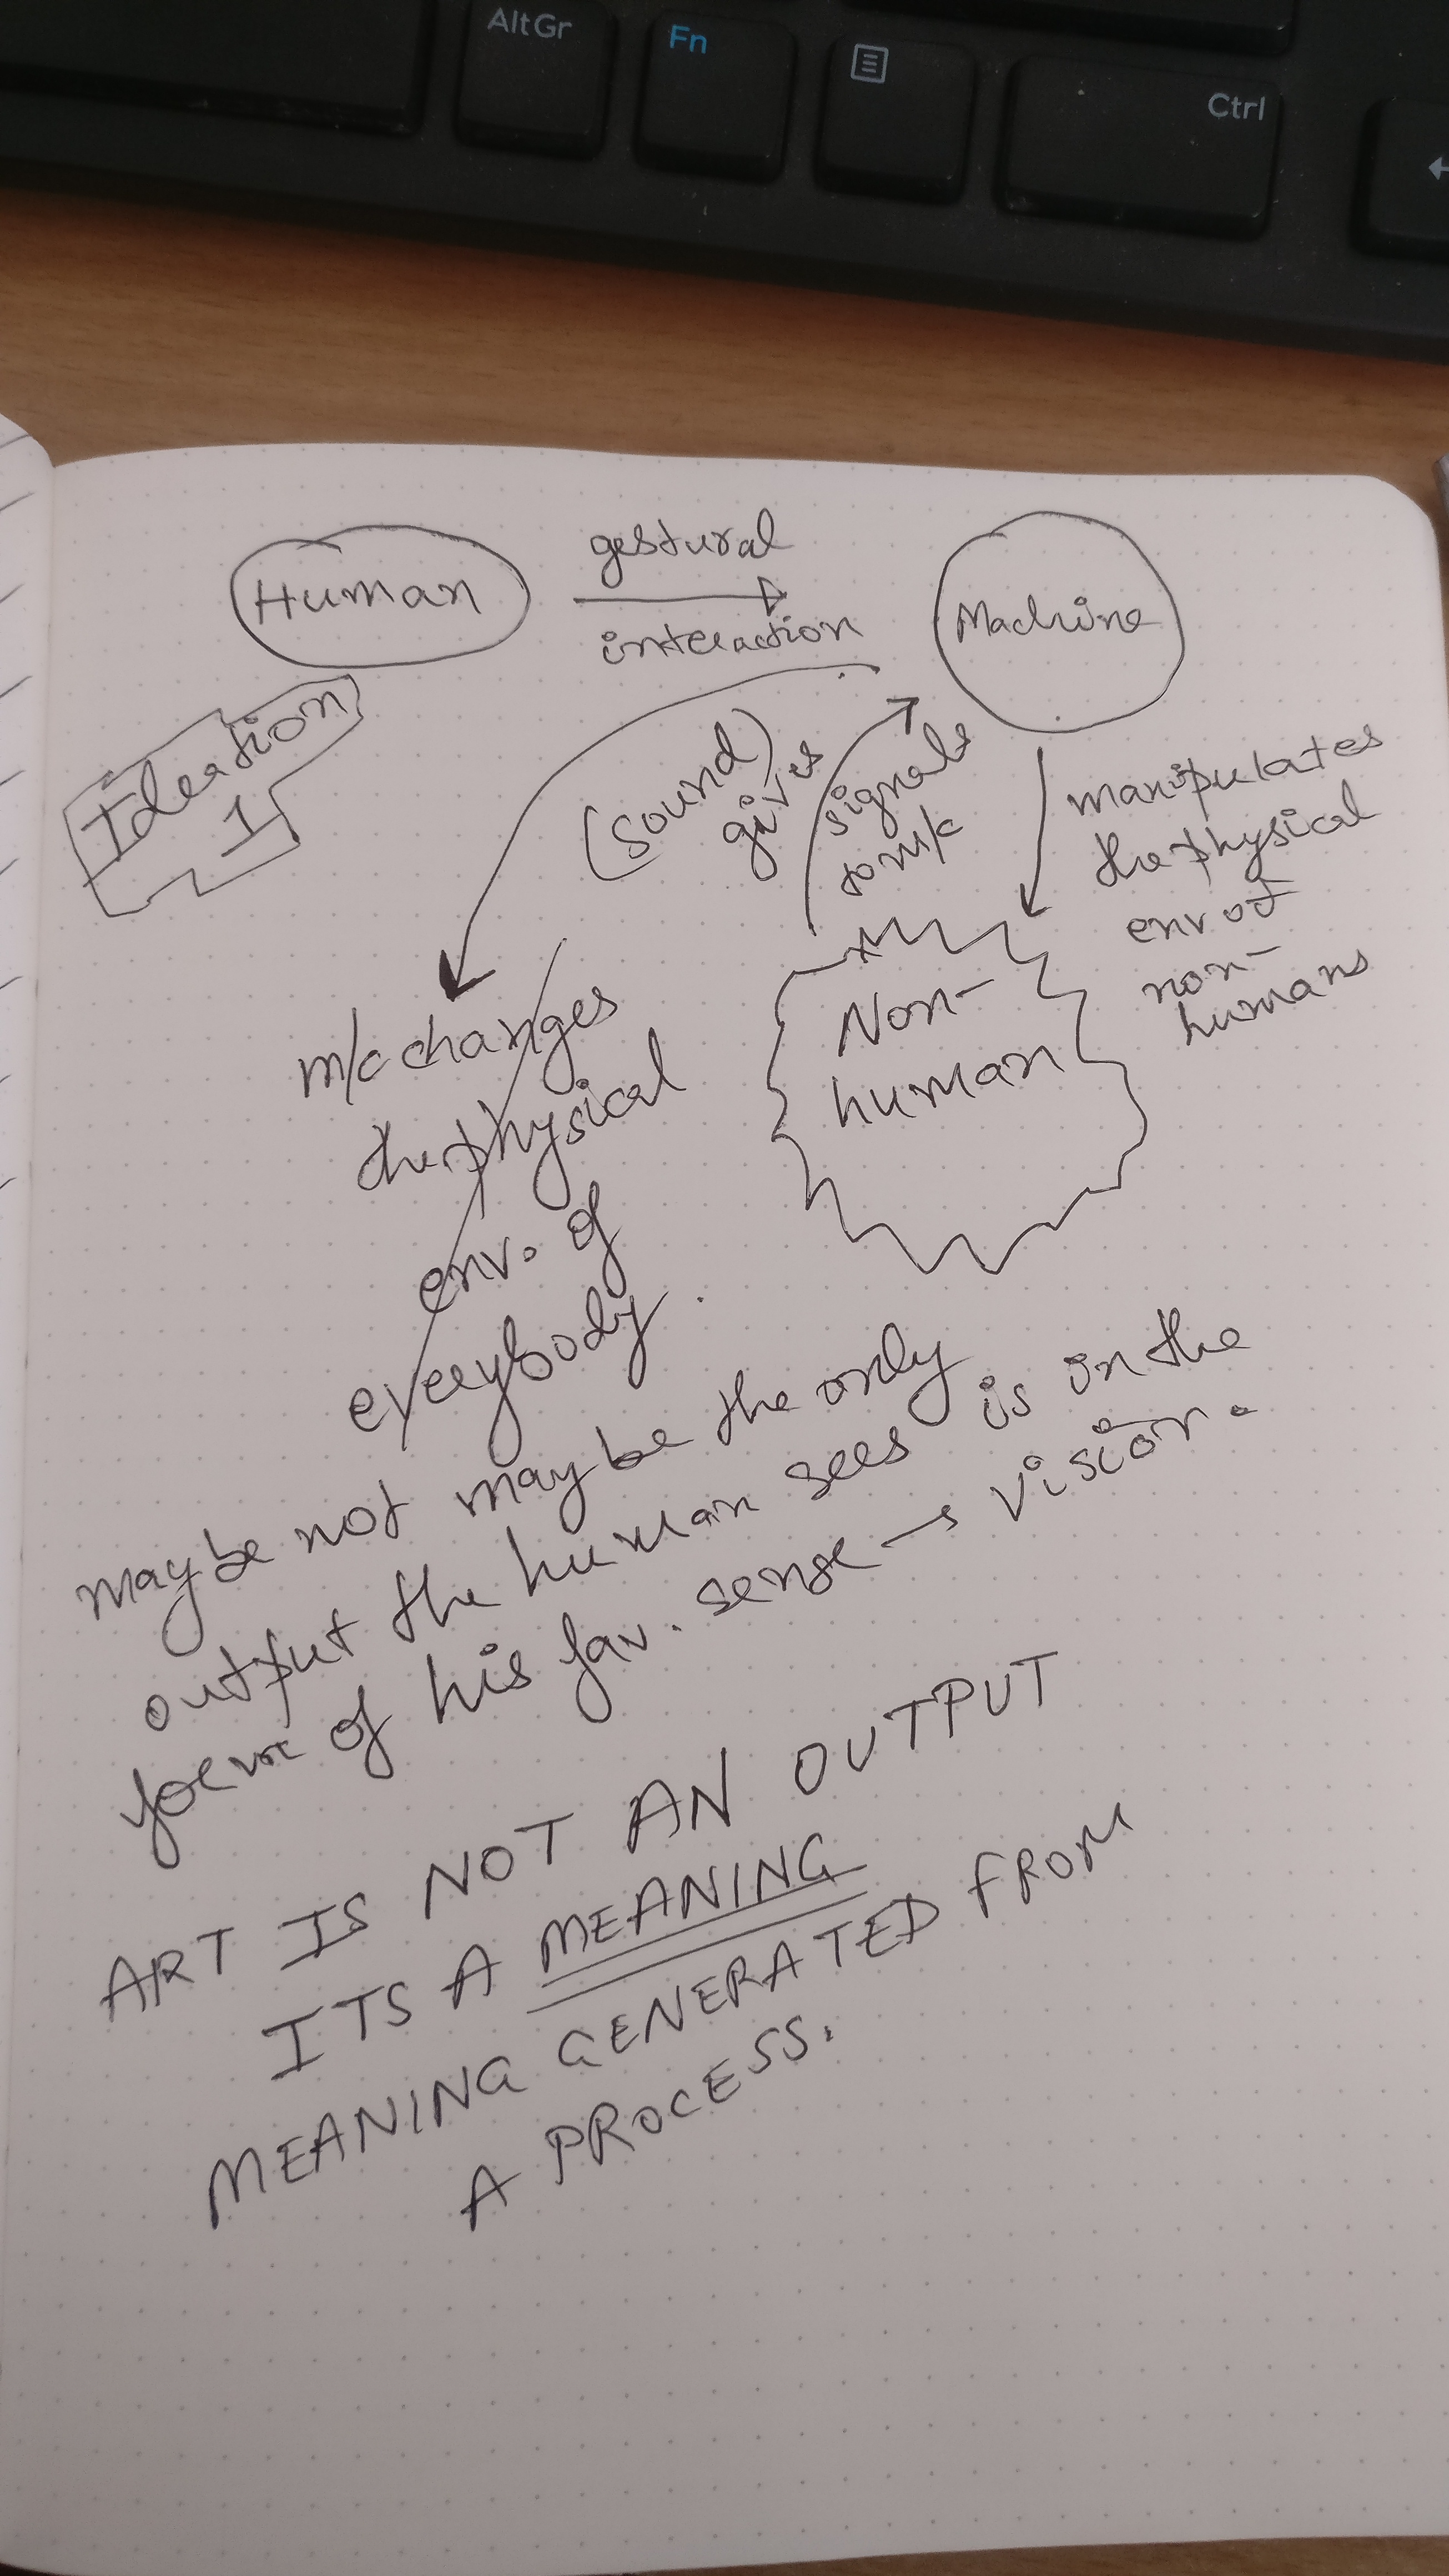 AltGr
Fn
Ctrl
Human
gestural
interaction
Machine
Ideation
1
(sound)
gives
signals
to m/c
manipulates
the physical
env of
non-
humans
m/c changes
the physical
env. of
everybody.
Non-
human
maybe not maybe the only
output the human sees is in the
form of his fav. sense → vision.
ART IS NOT AN OUTPUT
ITS A MEANING
MEANING GENERATED FROM
A PROCESS.